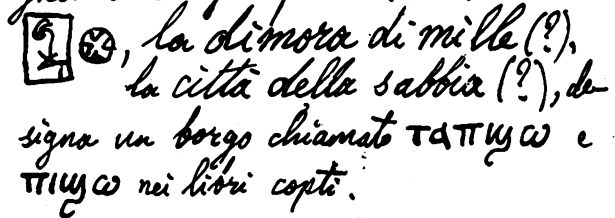 𓊖, la dimora di mille (?),
la città della sabbia (?), de-
signa un borgo chiamato ⲧⲁⲡⲓϣⲱ e
ⲡⲓϣⲱ nei libri copti.